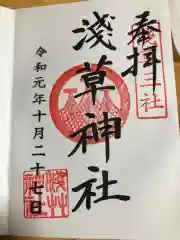 奉拝
三社
淺草神社
令和元年十月二十七日
淺草神社